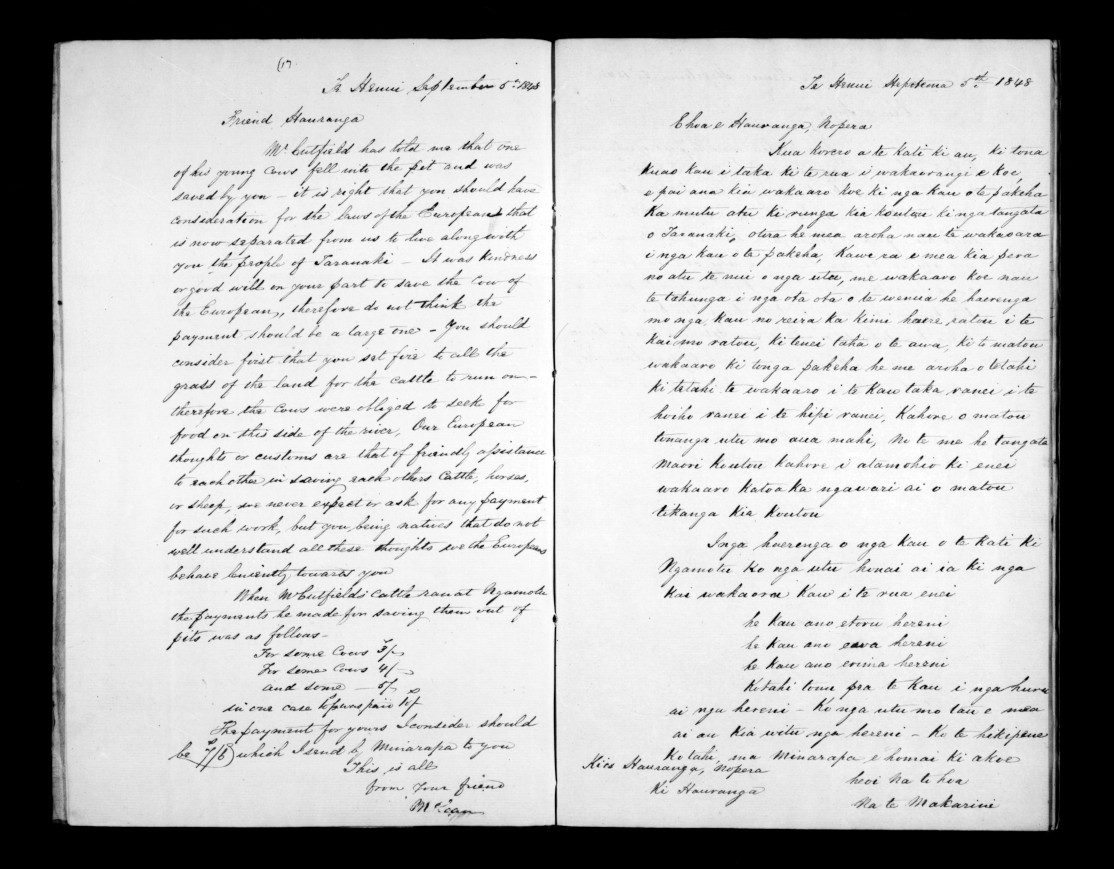 (17)
Te Henui September 5th 1848
Friend Hauranga
Mr Cutfield has told me that one
of his young cows fell into the pit and was
saved by you – it is right that you should have
consideration for the laws of the European that
is now separated from us to live along with
you the people of Taranaki – It was kindness
or good will on your part to save the Cow of
the European, therefore do not think the
payment should be a large one – You should
consider first that you set fire to all the
grass of the land for the cattle to run on –
therefore the cows were obliged to seek for
food on this side of the river, Our European
thoughts or customs are that of friendly assistance
to each other in saving each others Cattle, horses,
or sheep, we never expect or ask for any payment
for such work, but you being natives that do not
well understand all these thoughts we the Europeans
behave leniently towards you
When Mr Cutfield's cattle ran at Ngamotu
the payments he made for saving them out of
pits was as follows –
For some Cows 3/-
For some Cows 4/-
and some – 5/-
in one case was paid 10/-
The payment for yours I consider should
be 7/6 which I send by Minarapa to you
This is all
from your friend
McLean
Te Henui Hepetema 5th 1848
Ehoa e Hauranga, Nopera
Kua korero a te Kati ki au, ki tona
kuao kau i taka ki te rua i wakaorangi e koe,
e pai ana kia wakaaro koe ki nga kau o te pakeha
ka mutu atu ki runga kia koutou ki nga tangata
o Taranaki, otira he mea aroha nau te wakaoara
i nga kau o te pakeha, Kawe ra e mea kia pera
no atu te nui o nga utu, me wakaaro koe nau
te tahunga i nga ota ota o te wenua he haerenga
mo nga kau no reira ka kimi haere ratou i te
kai mo ratou, ki tenei taha o te awa, ki ta matou
wakaaro ki tonga pakeha he me aroha o tetahi
ki tetahi te wakaaro i te kau taka ranei i te
hoiho ranei i te hipi ranei, Kahore o matou
tonanga utu mo aua mahi, No te me he tangata
maori koutou kahore i atamohio ki enei
wakaaro katoa ka ngawari ai o matou
tikanga kia koutou
Inga huerenga o nga kau o te Kati ki
Ngamotu ko nga utu honai ai ia ki nga
kai wakaora kau i te rua enei
he kau ano etoru hereni
he kau ano ewa hereni
he kau ano erima hereni
Kotahi tonu pea te kau i nga huru
ai nga hereni – Ko nga utu mo tau e mea
ai au kia witu nga hereni – Ko te hikipene
Kotahi, ma Minarapa e homai ki akoe
heoi Na te hoa
Na te Makarini
Kia Hauranga, Nopera
Ki Hauranga